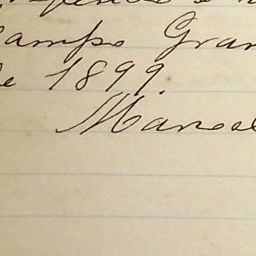 Campo Gran
de 1899.
Manoel